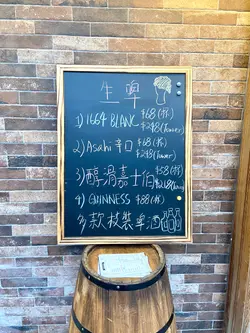 生啤
1) 1664 BLANC $68(杯)
$248(Tower)
2) Asahi 辛口 $68(杯)
$248(Tower)
3) 醇滑嘉士伯 $58(杯)
4) GUINNESS $88(杯)
多款枝裝啤酒